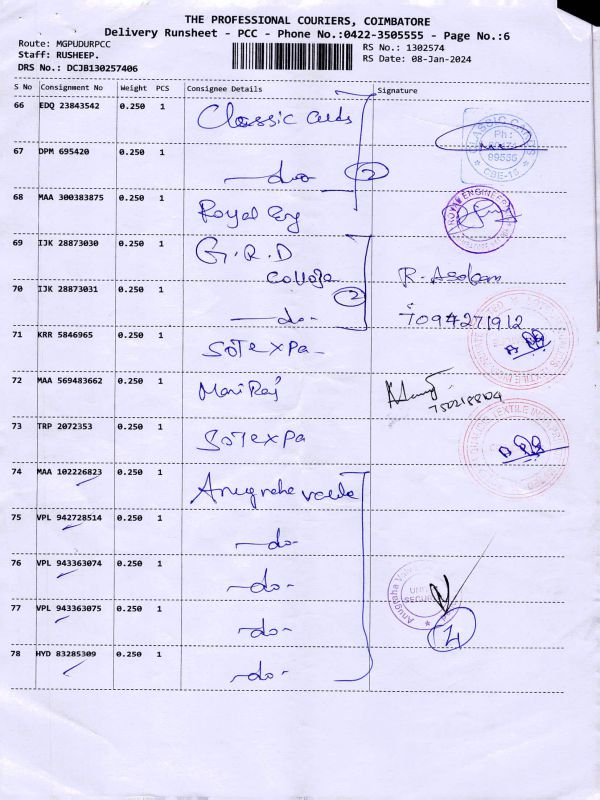 THE PROFESSIONAL COURIERS, COIMBATORE
Delivery Runsheet - PCC - Phone No.:0422-3505555 - Page No.:6
Route: MGPUDURPCC
Staff: RUSHEEP.
DRS No.: DCJB130257406
RS No.: 1302574
RS Date: 08-Jan-2024
S No Consignment No Weight PCS Consignee Details Signature
66 EDQ 23843542 0.250 1 Classic
CLASSIC CARDS
Ph:
99555
CBE-15
67 DPM 695420 0.250 1 -do- 2
68 MAA 300383875 0.250 1 Royal Eng
ROYAL ENGINEER
69 IJK 28873030 0.250 1 G.R.D
College R. Asokan
70 IJK 28873031 0.250 1 -do- 2 7094271912
71 KRR 5846965 0.250 1 SOTEXPA
72 MAA 569483662 0.250 1 Mani Raj
73 TRP 2072353 0.250 1 SOTEXPA
74 MAA 102226823 0.250 1 Anugraha
75 VPL 942728514 0.250 1 -do-
76 VPL 943363074 0.250 1 -do-
Anugraha
77 VPL 943363075 0.250 1 -do-
78 HYD 83285309 0.250 1 -do-